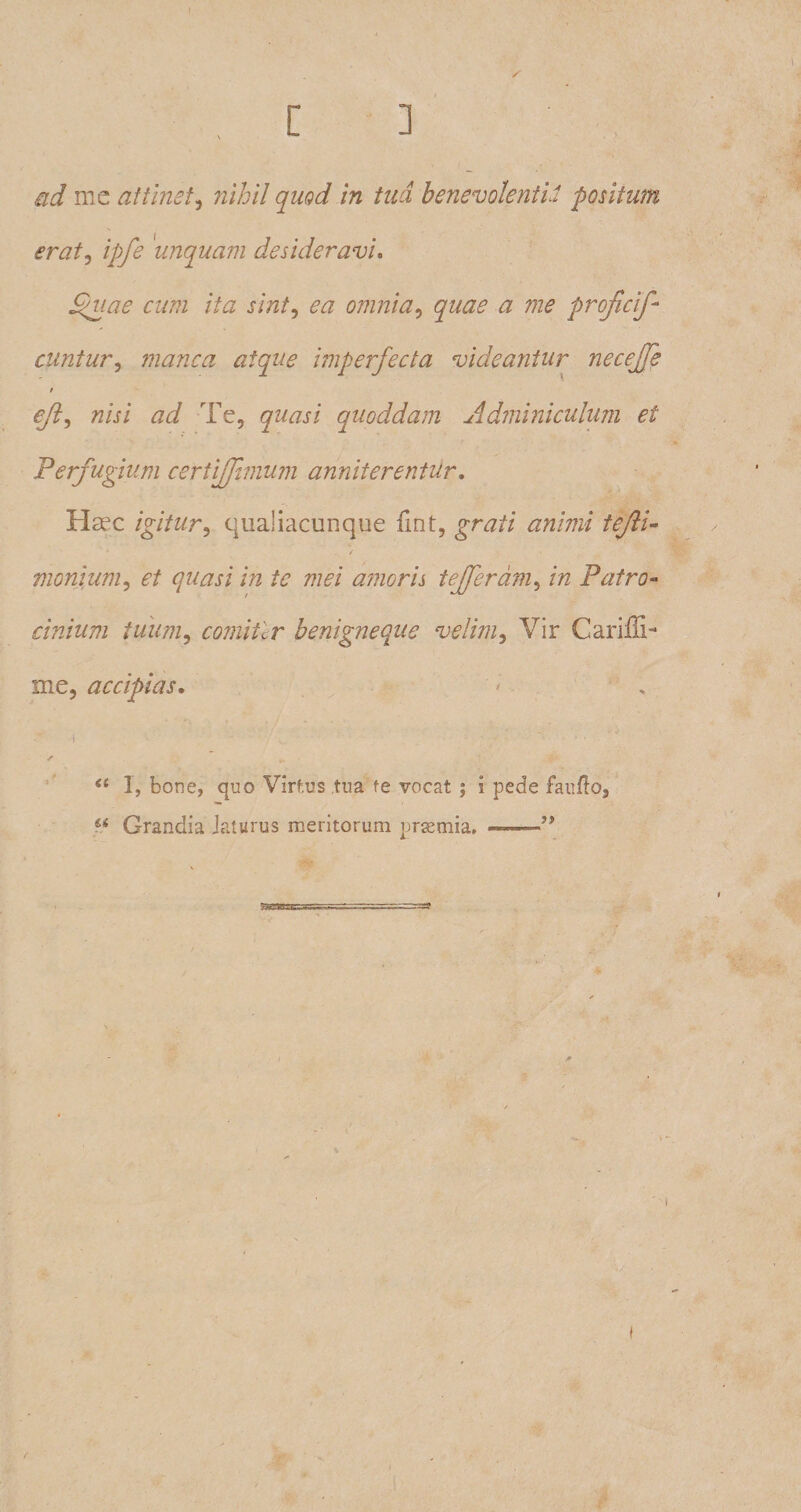 [ ]
ad me attinet, nihil quod in tuâ benevolentiâ positum
erat, ipſe unquam desideravi.
Quae cum ita sint, ea omnia, quae a me proficiſ-
cuntur, manca atque imperfecta videantur neceſſe
eſt, nisi ad Te, quasi quoddam Adminiculum et
Perfugium certiſſimum anniterentur.
Hæc igitur, qualiacunque ſint, grati animi teſti-
monium, et quasi in te mei amoris teſſeram, in Patro-
cinium tuum, comiter benigneque velim, Vir Cariſſi-
me, accipias.
“ I, bone, quo Virtus tua te vocat ; i pede fauſto,
“ Grandia laturus meritorum præmia, ——”